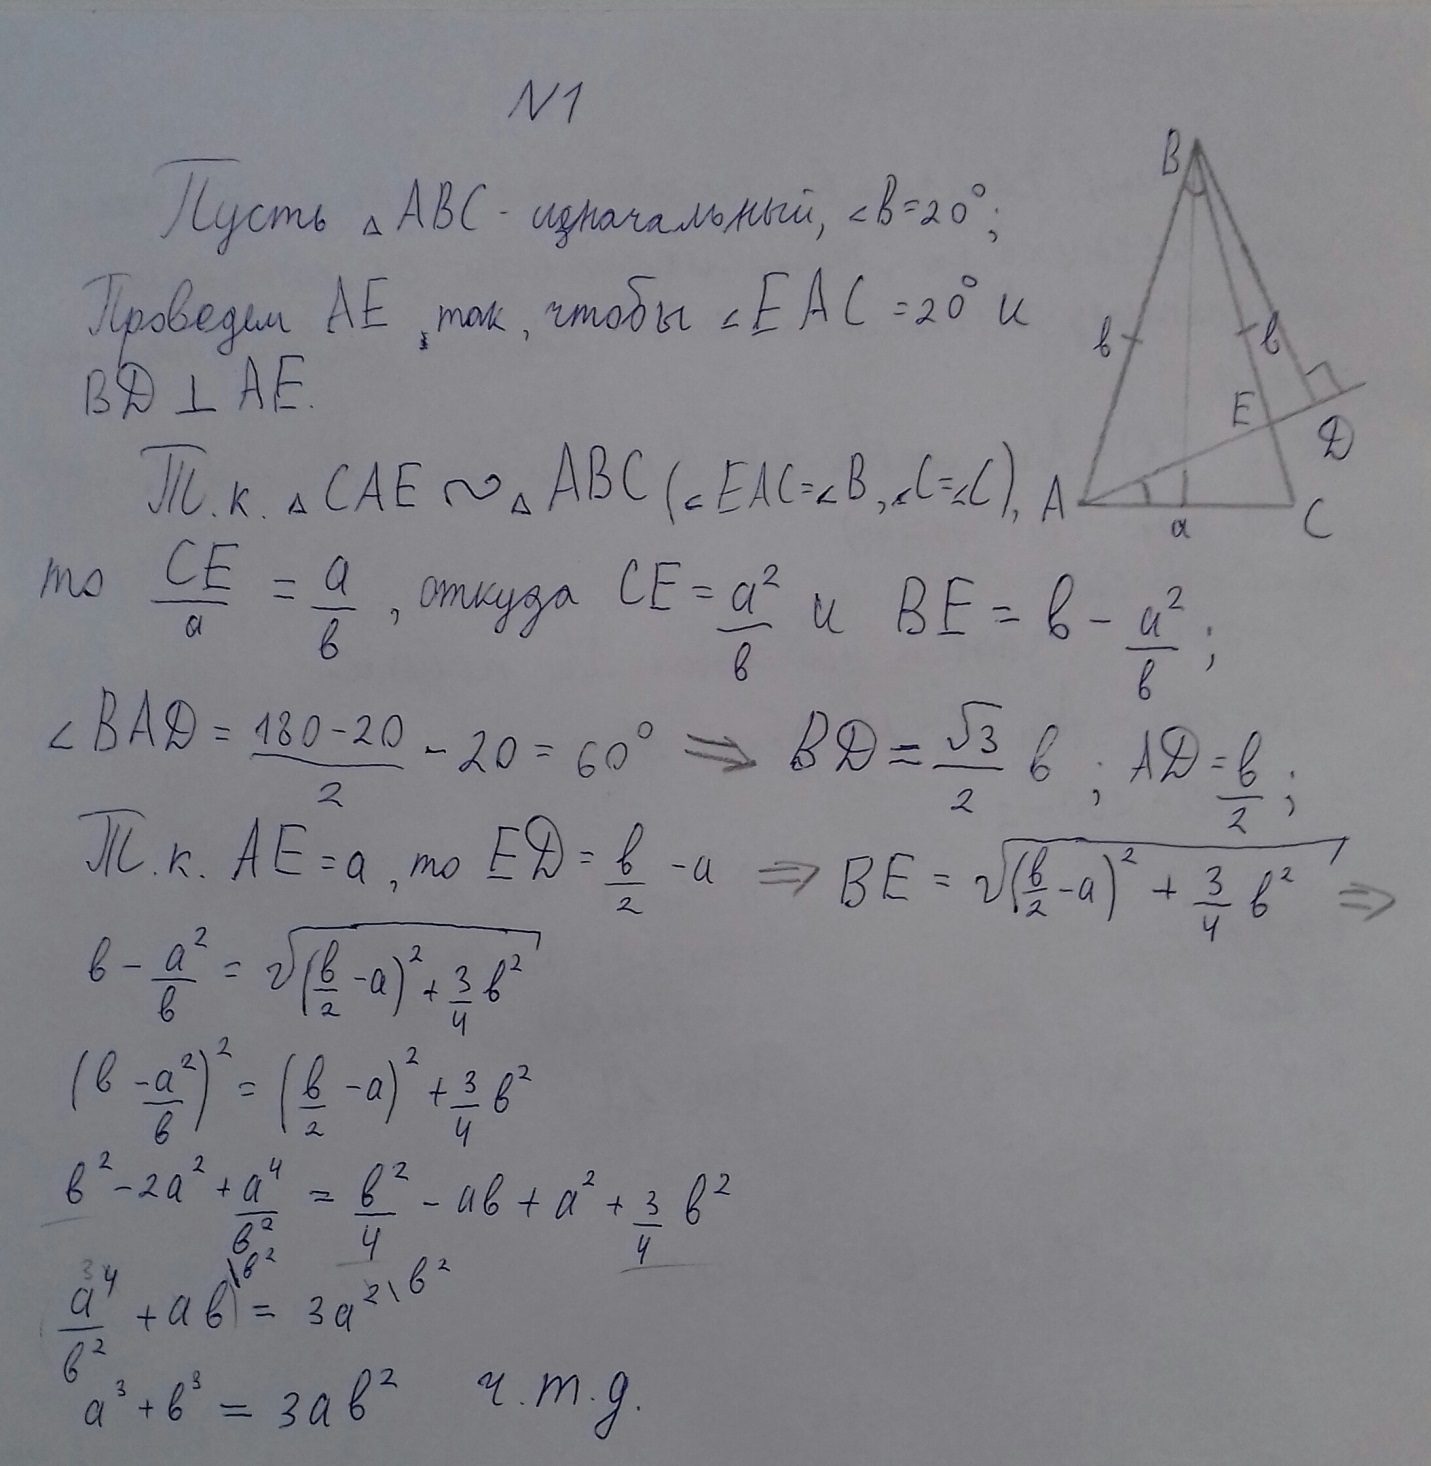 N1
Пусть △ABC - изначальный, ∠B=20°;
Проведем AE, так, чтобы ∠EAC=20° и
BD ⊥ AE.
Т.к. △CAE ∾ △ABC (∠EAC=∠B, ∠C=∠C),
то CE/a = a/b, откуда CE = a²/b и BE = b - a²/b;
∠BAD = (180-20)/2 - 20 = 60° ⇒ BD = √3/2 b; AD = b/2;
Т.к. AE = a, то ED = b/2 - a ⇒ BE = √((b/2 - a)² + 3/4 b²) ⇒
b - a²/b = √((b/2 - a)² + 3/4 b²)
(b - a²/b)² = (b/2 - a)² + 3/4 b²
b² - 2a² + a⁴/b² = b²/4 - ab + a² + 3/4 b²
a⁴/b² + ab\b² = 3a²\b²
a³ + b³ = 3ab² ч.т.д.
B
b
b
E
D
A
a
C